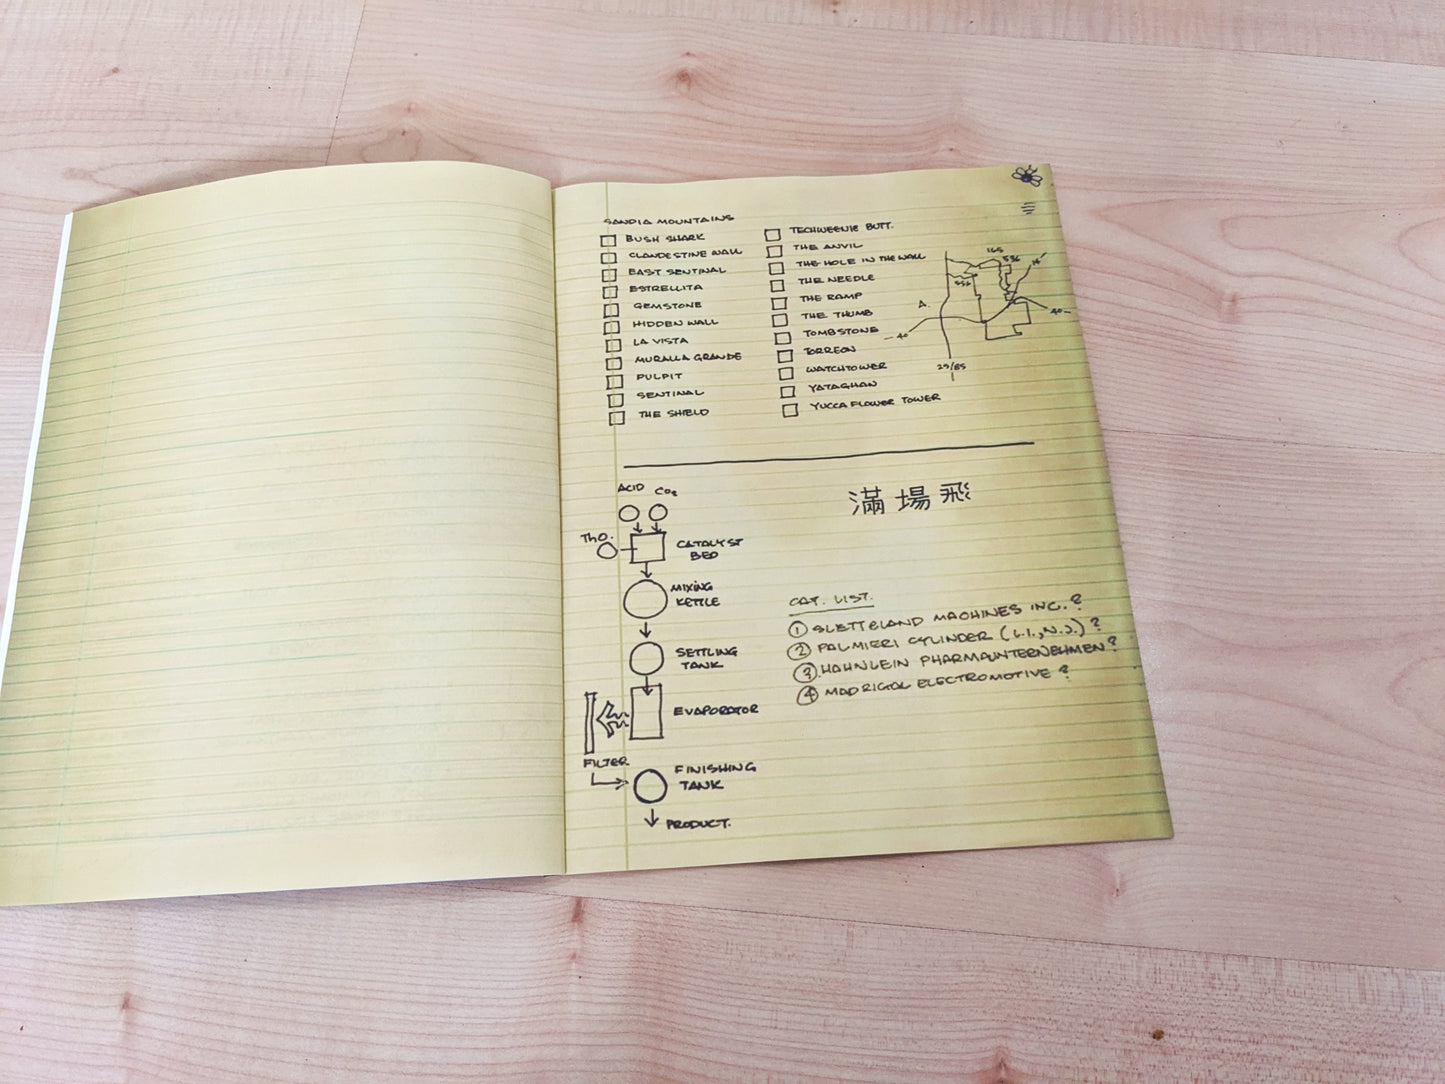 SANDIA MOUNTAINS
BUSH SHARK
CLANDESTINE WALL
EAST SENTINAL
ESTRELLITA
GEMSTONE
HIDDEN WALL
LA VISTA
MURALLA GRANDE
PULPIT
SENTINAL
THE SHIELD
TECHWEENIE BUTT.
THE ANVIL
THE HOLE IN THE WALL
THE NEEDLE
THE RAMP
THE THUMB
TOMBSTONE
TORREON
WATCHTOWER
YATAGHAN
YUCCA FLOWER TOWER
165
536
556
14
A.
40
40
25/85
ACID CO₂
ThO.
CATALYST
BED
MIXING
KETTLE
SETTLING
TANK
EVAPORATOR
FILTER
FINISHING
TANK
PRODUCT.
滿場飛
CAT. LIST.
① SLETTELAND MACHINES INC.?
② PALMIERI CYLINDER (L.I., N.J.)?
③ HAHNLEIN PHARMAUNTERNEHMEN?
④ MADRIGAL ELECTROMOTIVE?